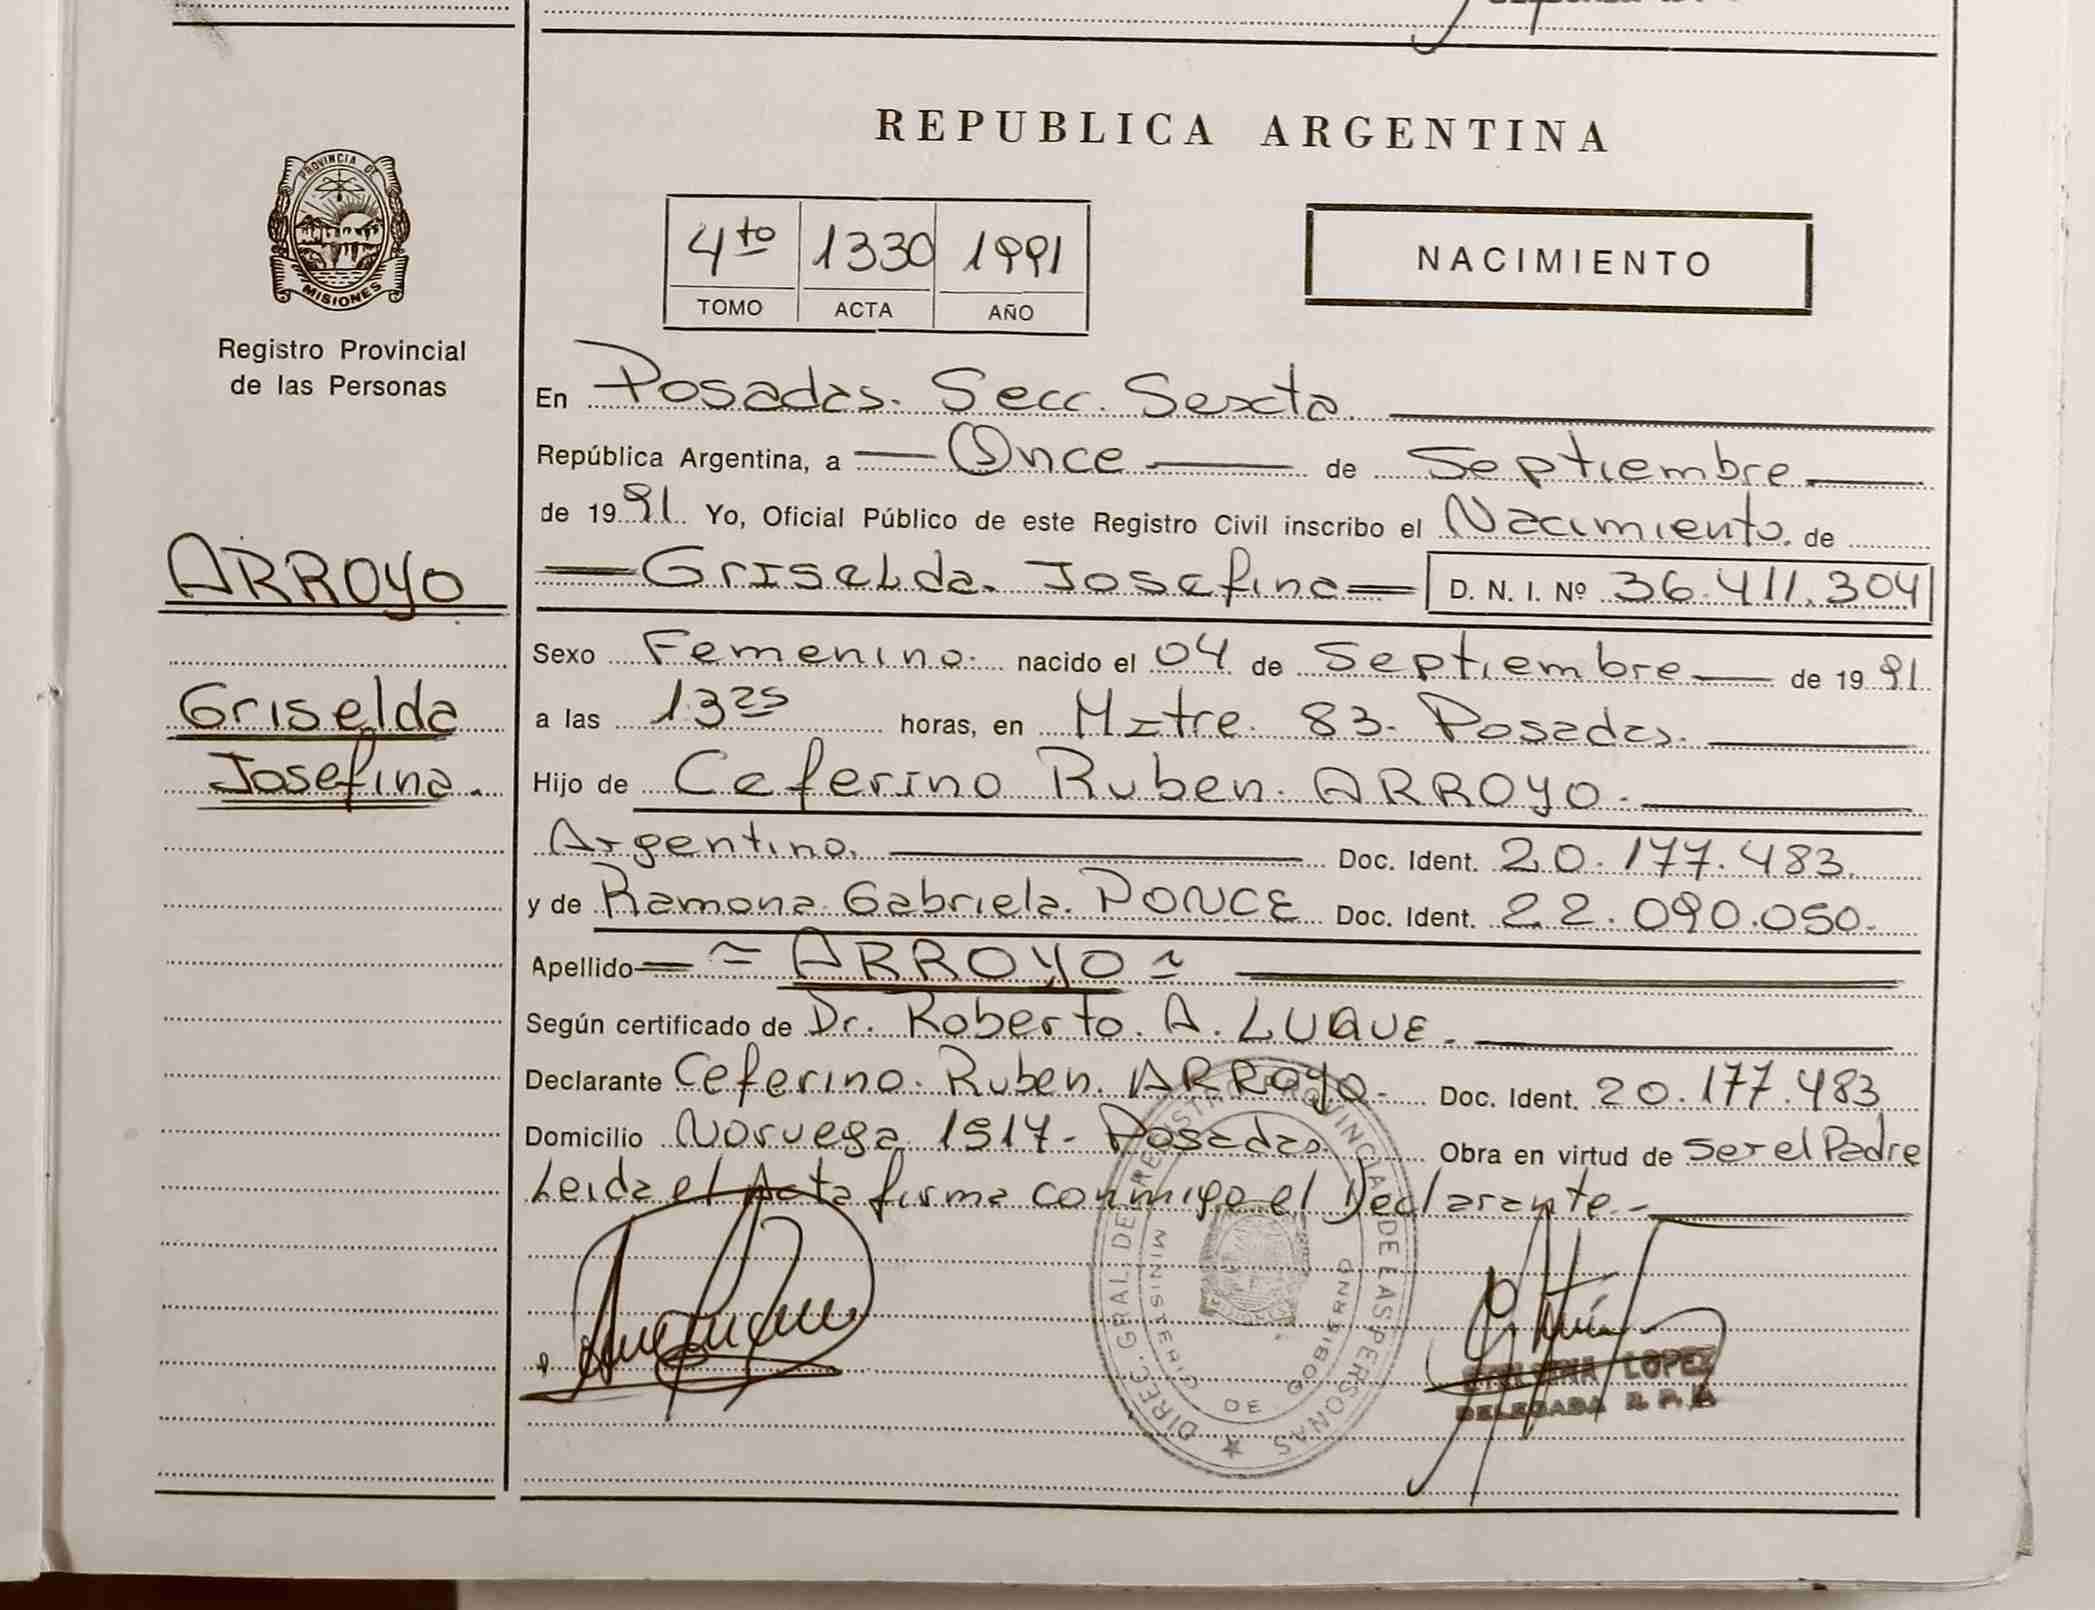 REPUBLICA ARGENTINA
PROVINCIA DE
MISIONES
Registro Provincial
de las Personas
4to 1330 1991
TOMO ACTA AÑO
NACIMIENTO
En Posadas. Secc. Sexta
República Argentina, a Once de Septiembre
de 1991 Yo, Oficial Público de este Registro Civil inscribo el Nacimiento de
ARROYO
Griselda
Josefina.
Griselda Josefina D. N. I. Nº 36.411.304
Sexo Femenino. nacido el 04 de Septiembre de 1991
a las 13 25 horas, en Mitre 83. Posadas.
Hijo de Ceferino Ruben. ARROYO.
Argentino. Doc. Ident. 20.177.483.
y de Ramona Gabriela. PONCE Doc. Ident. 22.090.050.
Apellido ARROYO
Según certificado de Dr. Roberto. A. LUQUE.
Declarante Ceferino. Ruben. ARROYO. Doc. Ident. 20.177.483
Domicilio Noruega 1917- Posadas. Obra en virtud de ser el Padre
Leida el Acta firma conmigo el Declarante.-
DIREC. GRAL. DEL REGISTRO PROVINCIAL DE LAS PERSONAS
MINISTERIO DE GOBIERNO
LOPEZ
DELEGADA R. P.